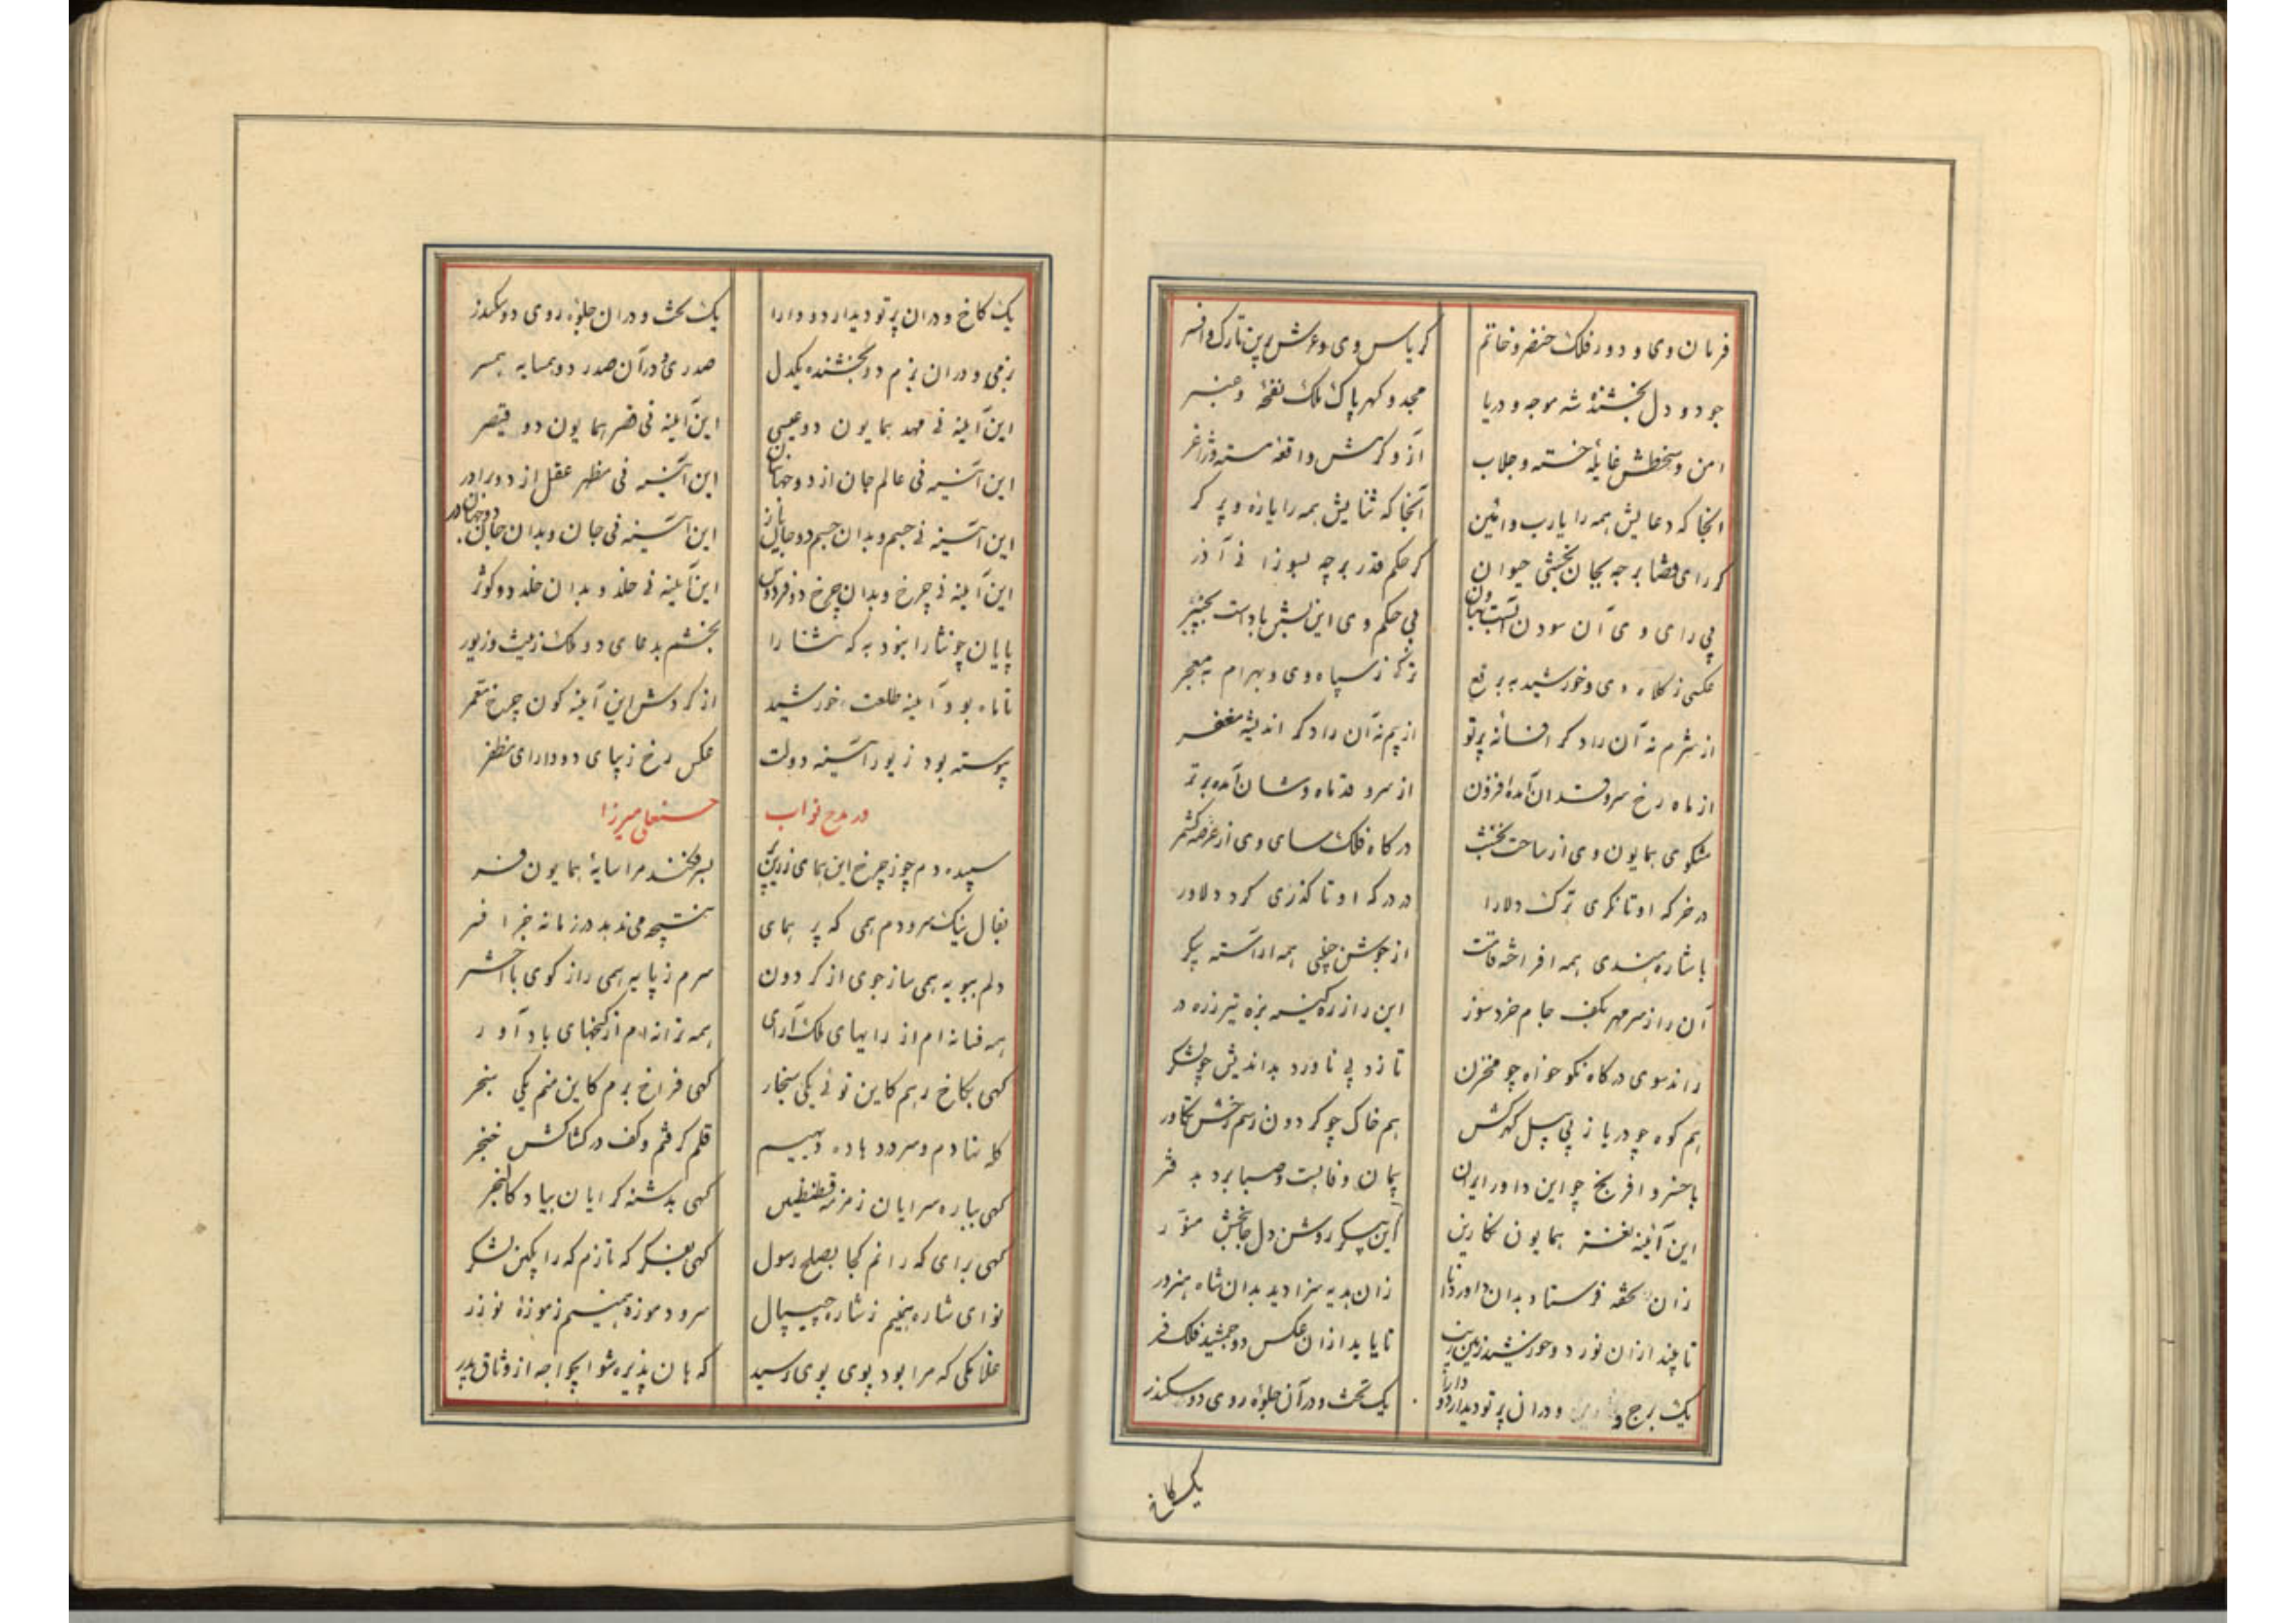 فرمان وی و دور فلک خنصر و خاتم کریاس وی و عرش برین تارک و افسر
جود و دل بخشندهٔ شه موجه و دریا مجد و گهر پاک ملک نفحهٔ و عنبر
امن و سخطش غایلهٔ خسته و جلاب
آنجا که دعایش همه را یارب و آئین آنجا که ثنایش همه را یازه و پر کر
کر رای قضا بر چه بجان بخشی حیوان کر حکم قدر بر چه بسوزا فی آذر
بی رای وی آن سودن بی حکم وی این
عکسی ز کلاه وی و خورشید به برقع ترکی ز سپاه وی و بهرام به معجر
از شرم نه آن راد کر افسانه پرتو از بیم نه آن راد کر اندیشه مغفر
از ماه رخ سرو قدان آمده افزون از سرو قد ماه وشان آمده برتر
مشکوی همایون وی از ساحت کخشب درکاه فلک سای وی از عرصه کشمر
در خرکه او تا نکری ترک دلارا در درکه او تا کذری کرد دلاور
با شاره هندی همه افراخته قامت از جوشن چینی همه آراسته پیکر
آن را ز سر مهر بکف جام خرد سوز این را ز ره کینه بزه تیر زره در
راند سوی درکاه نکو خواه چو مخزن تا زد پی ناورد بداندیش چو لشکر
هم کوه چو دریا ز پی پیل کهرکش هم خاک چو کردون ز سم رخش تکاور
با خسرو افرنج چو این داور ایران پیمان وفا بست و صبا برد به
این آینه نغز همایون نکارین این پیکر روشن دل جانبخش منور
زان تحفه فرستاد بدان داور دارا زان هدیه سزا دید بدان شاه هنرور
تا بیند ازان نور دو خورشید زمین تا یابد ازان عکس دو جمشید فلک فر
یک برج و دران پرتو دیدار دو دارا یک تخت و در آن جلوهٔ روی دو سکندر
یک کاخ
یک کاخ و دران پرتو دیدار دو دارا یک تخت و دران جلوهٔ روی دو سکندر
بزمی و دران بزم دو بخشنده یکدل صدری و در آن صدر دو همسایه همسر
این آینه فی مهد همایون دو عیسی این آینه فی قصر همایون دو قیصر
این آینه فی عالم جان از دو جهانبان این آینه فی مظهر عقل از دو برادر
این آینه فی جسم و بدان جسم دو جان این آینه فی جان و بدان جان دو جهان در
این آینه فی چرخ و بدان چرخ دو فرقد این آینه فی خلد و بدان خلد دو کوثر
پایان چو ثنا را نبود به که ثنا را بخشم بدعای دو ملک زینت و زیور
تا ماه بود آینه طلعت خورشید از کردش این آینه کون چرخ مقمر
پیوسته بود زیور آینه دولت عکس رخ زیبای دو دارای مظفر
در مدح نواب حسنعلی میرزا
سپیده دم چو ز چرخ این همای زرین پر بسر فکند مرا سایهٔ همایون فر
بفال نیک سرودم همی که پر همای نتیجه می‌ندهد در زمانه جز افسر
دلم ببویه همی ساز جوی از کردون سرم ز پایه همی راز کوی با اختر
همه فسانه‌ام از رایهای ملک آرای همه ترانه‌ام از کنجهای باد آور
کهی بکاخ رهم کاین نوئی یکی سنجار کهی فراخ برم کاین منم یکی سنجر
کله نهادم و سر در هاده دیهیم قلم کرفتم و کف در کشاکش خنجر
کهی بباره سرایان ز مرز قسطنطین کهی بدشنه کرایان بیاد کالنجر
کهی برای که رانم کجا بصلح رسول کهی بفکر که تازم که را بکین لشکر
نوای شاره هنجیم ز شاره جیپال سرود موزه همینم ز موزهٔ نوذر
غلامکی که مرا بود پوی پوی رسید که هان پذیره شو ایخواجه از وثاق بدر